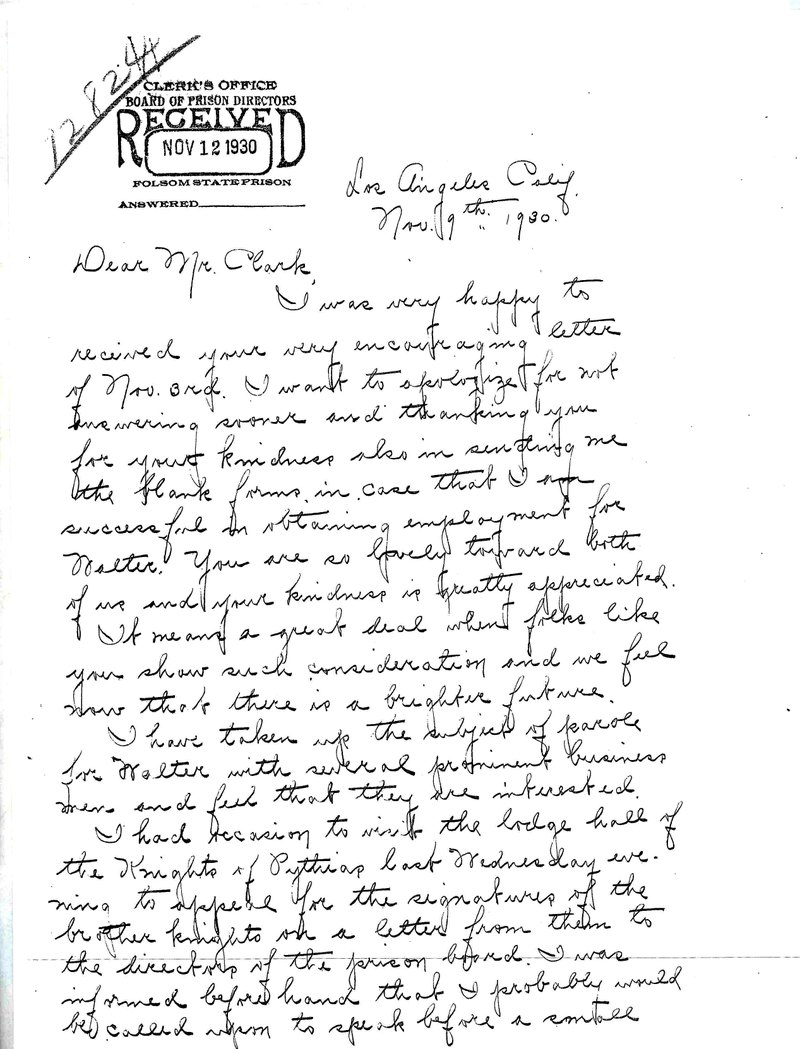 12824
CLERK'S OFFICE
BOARD OF PRISON DIRECTORS
RECEIVED
NOV 12 1930
FOLSOM STATE PRISON
ANSWERED
Los Angeles Calif.
Nov. 9th. 1930.
Dear Mr. Clark,
I was very happy to
received your very encouraging letter
of Nov. 3rd. I want to apologize for not
answering sooner and thanking you
for your kindness also in sending me
the blank forms in case that I am
successful in obtaining employment for
Walter. You are so lovely toward both
of us and your kindness is greatly appreciated.
It means a great deal when folks like
you show such consideration and we feel
now that there is a brighter future.
I have taken up the subject of parole
for Walter with several prominent business
men and feel that they are interested.
I had occasion to visit the lodge hall of
the Knights of Pythias last Wednesday eve-
ning to appeal for the signatures of the
brother knights on a letter from them to
the directors of the prison board. I was
informed before hand that I probably would
be called upon to speak before a small